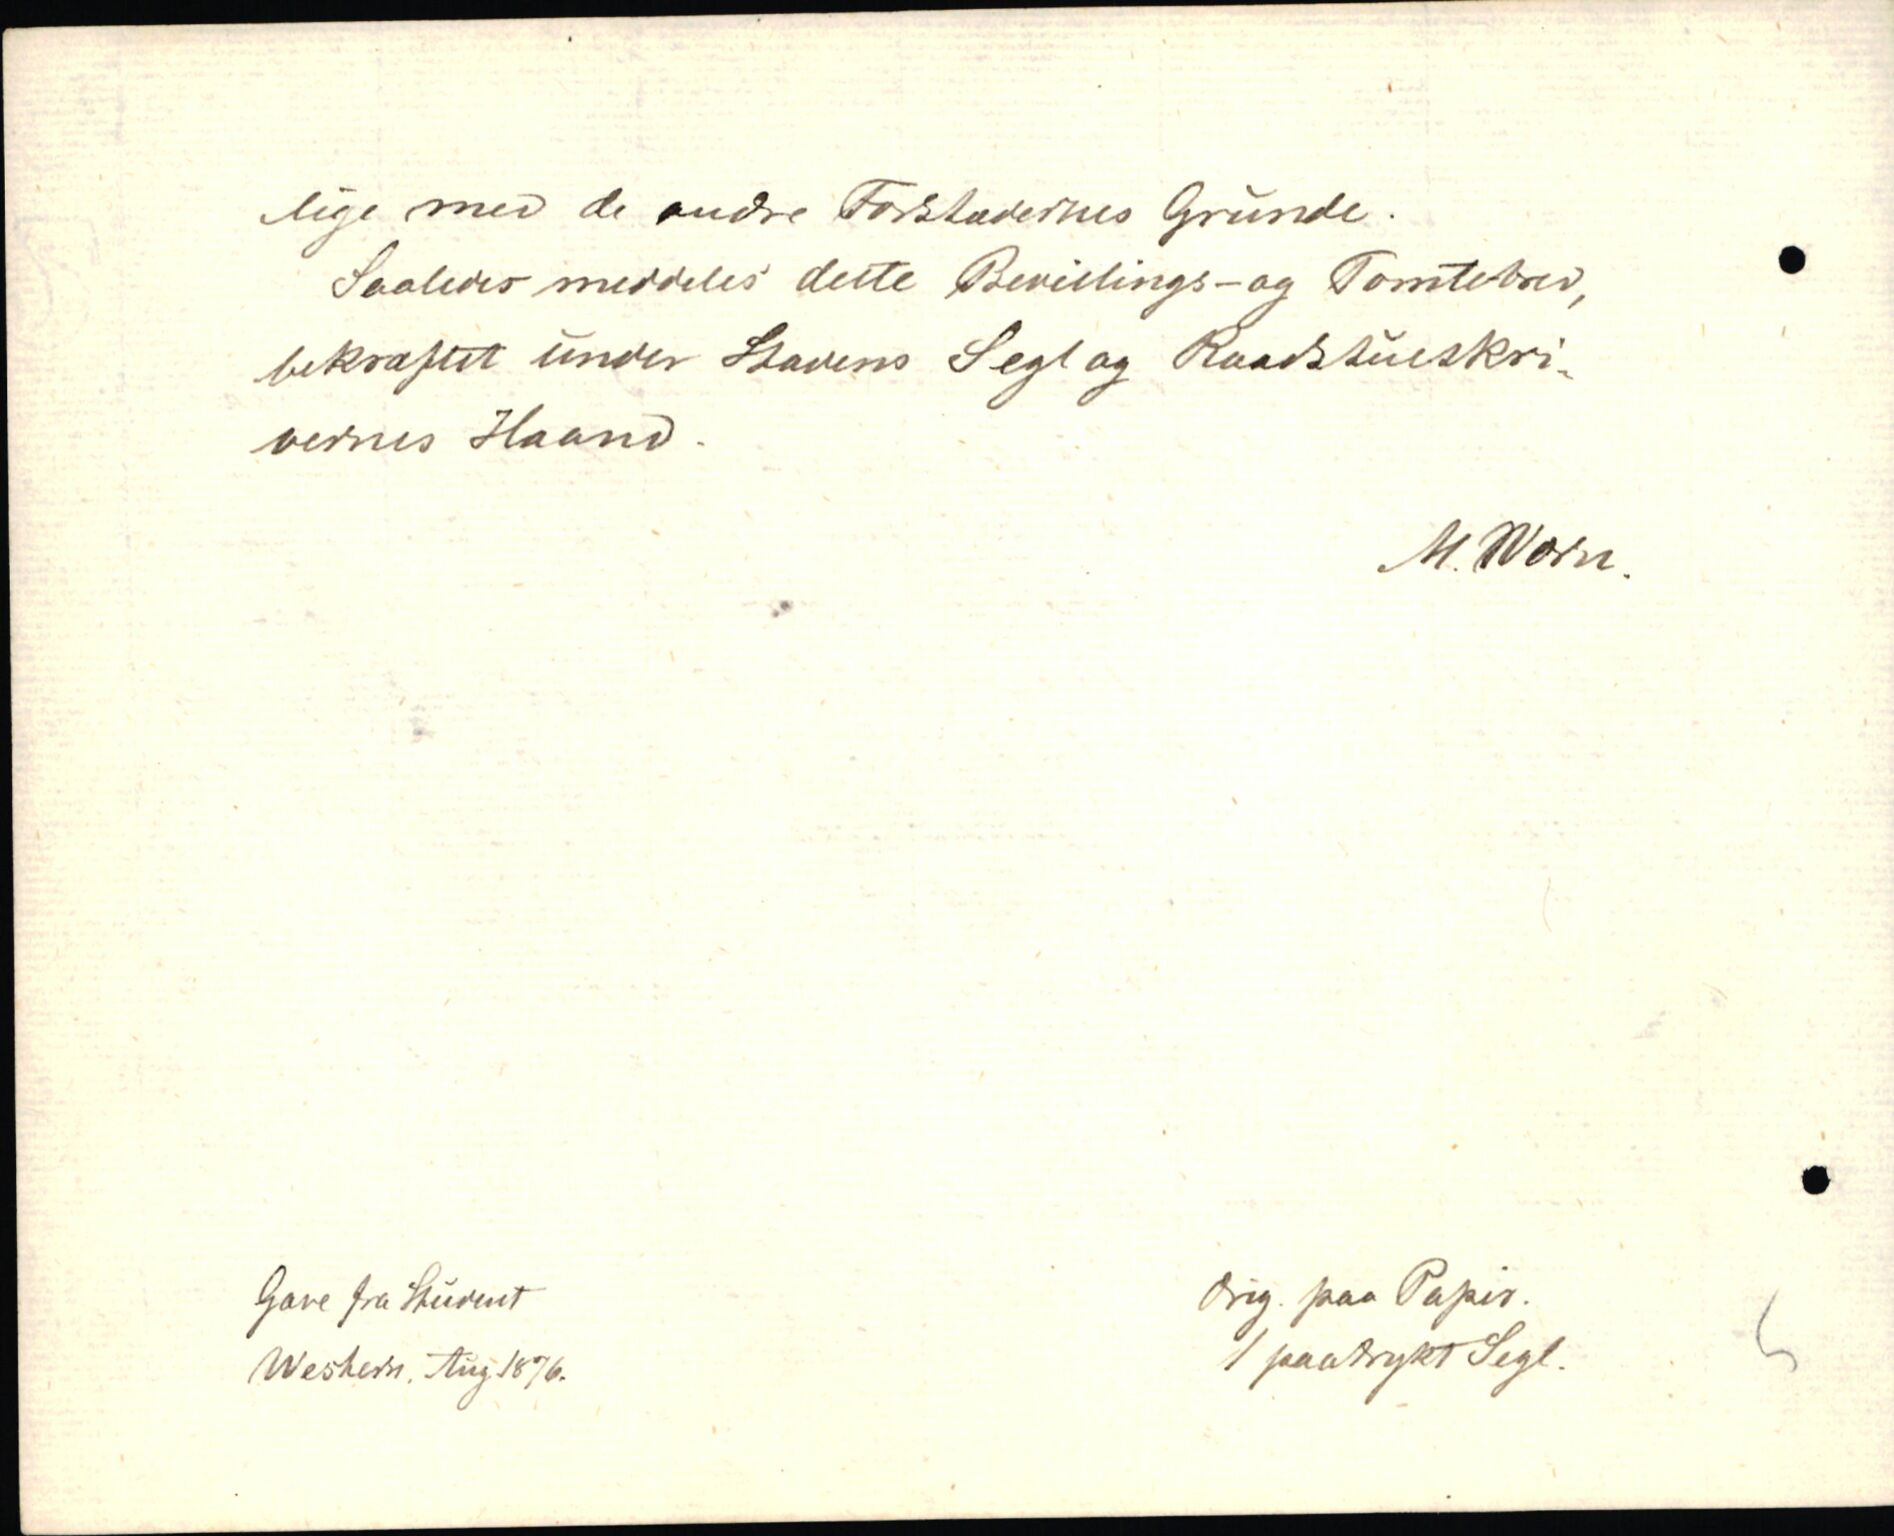 lige med de andre Forstadernes Grunde.
Saaledes meddeles dette Bevillings- og Tomtebrev,
bekræftet under Stadens Segl og Raadstueskri-
vernes Haand.
M. Worn.
Gave fra Student
Western. Aug 1876.
Orig. paa Papir.
1 paatrykt Segl.